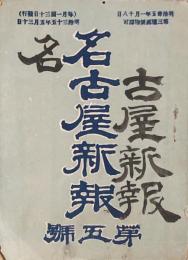 明治卅五年一月十八日
第三種郵便物認可
(毎月一回三十日發行)
明治三十五年五月三十日
名古屋新報
名古屋新報
第五號